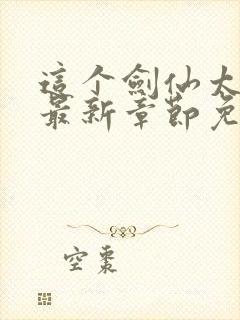 這个劍仙太
最新章節免
空棗